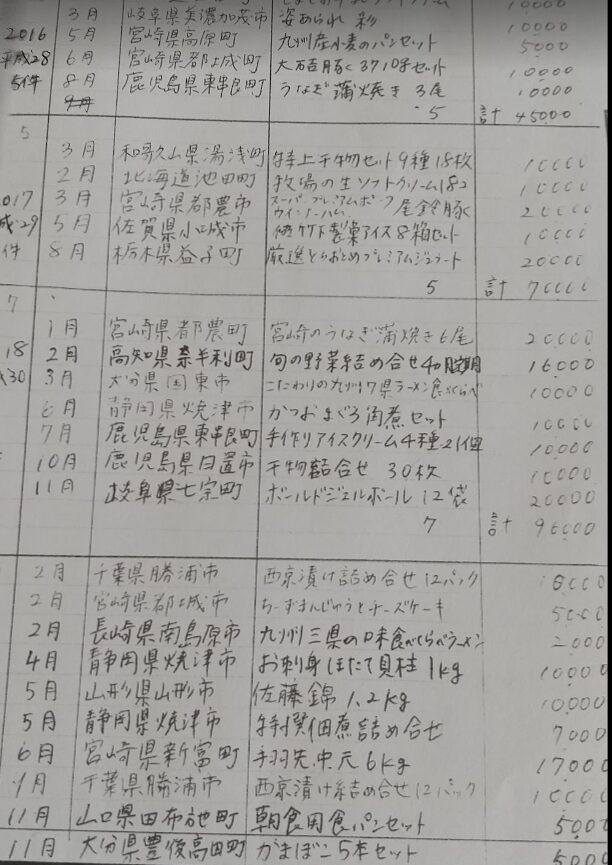 3月 岐阜県美濃加茂市 10000
2016 5月 宮崎県高原町 九州産小麦のパンセット 5000
平成28 6月 宮崎県都城市 10000
5件 8月 鹿児島県東串良町 うなぎ蒲焼き 3尾 10000
9月
5 計 45000
5
3月 和歌山県湯浅町 特上干物セット9種18枚 10000
2月 北海道池田町 牧場の生ソフトクリーム 10000
017 3月 宮崎県都農市 スーパープレミアムポーク ウインナーハム 尾鈴豚 20000
成29 5月 佐賀県小城市 竹下製菓アイス8箱セット 10000
件 8月 栃木県益子町 厳選とちおとめプレミアムジェラート 20000
5 計 70000
7
1月 宮崎県都農町 宮崎のうなぎ蒲焼き6尾 20000
18 2月 高知県奈半利町 旬の野菜詰め合せ4ヵ月定期 16000
30 3月 大分県国東市 こだわりの九州7県ラーメン食べくらべ 10000
6月 静岡県焼津市 かつおまぐろ角煮セット 10000
7月 鹿児島県東串良町 手作りアイスクリーム4種21個 10000
10月 鹿児島県日置市 干物詰合せ 30枚 10000
11月 岐阜県七宗町 ボールドジェルボール 12袋 20000
7 計 96000
2月 千葉県勝浦市 西京漬け詰め合せ12パック 10000
2月 宮崎県都城市 ちーずまんじゅうとチーズケーキ 5000
2月 長崎県南島原市 九州三県の味食べくらべラーメン 2000
4月 静岡県焼津市 お刺身ほたて貝柱 1kg 10000
5月 山形県山形市 佐藤錦 1.2kg 10000
5月 静岡県焼津市 特撰佃煮詰め合せ 7000
6月 宮崎県新富町 手羽先中元 6kg 17000
9月 千葉県勝浦市 西京漬け詰め合せ12パック 10000
11月 山口県田布施町 朝食用食パンセット 5000
11月 大分県豊後高田町 かまぼこ5本セット 5000